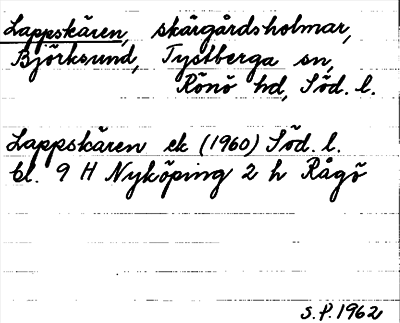 Lappskären, skärgårdsholmar,
Björksund, Tystberga sn,
Rönö hd, Söd. l.
Lappskären ek (1960) Söd. l.
bl. 9 H Nyköping 2 h Rågö
S.P. 1962